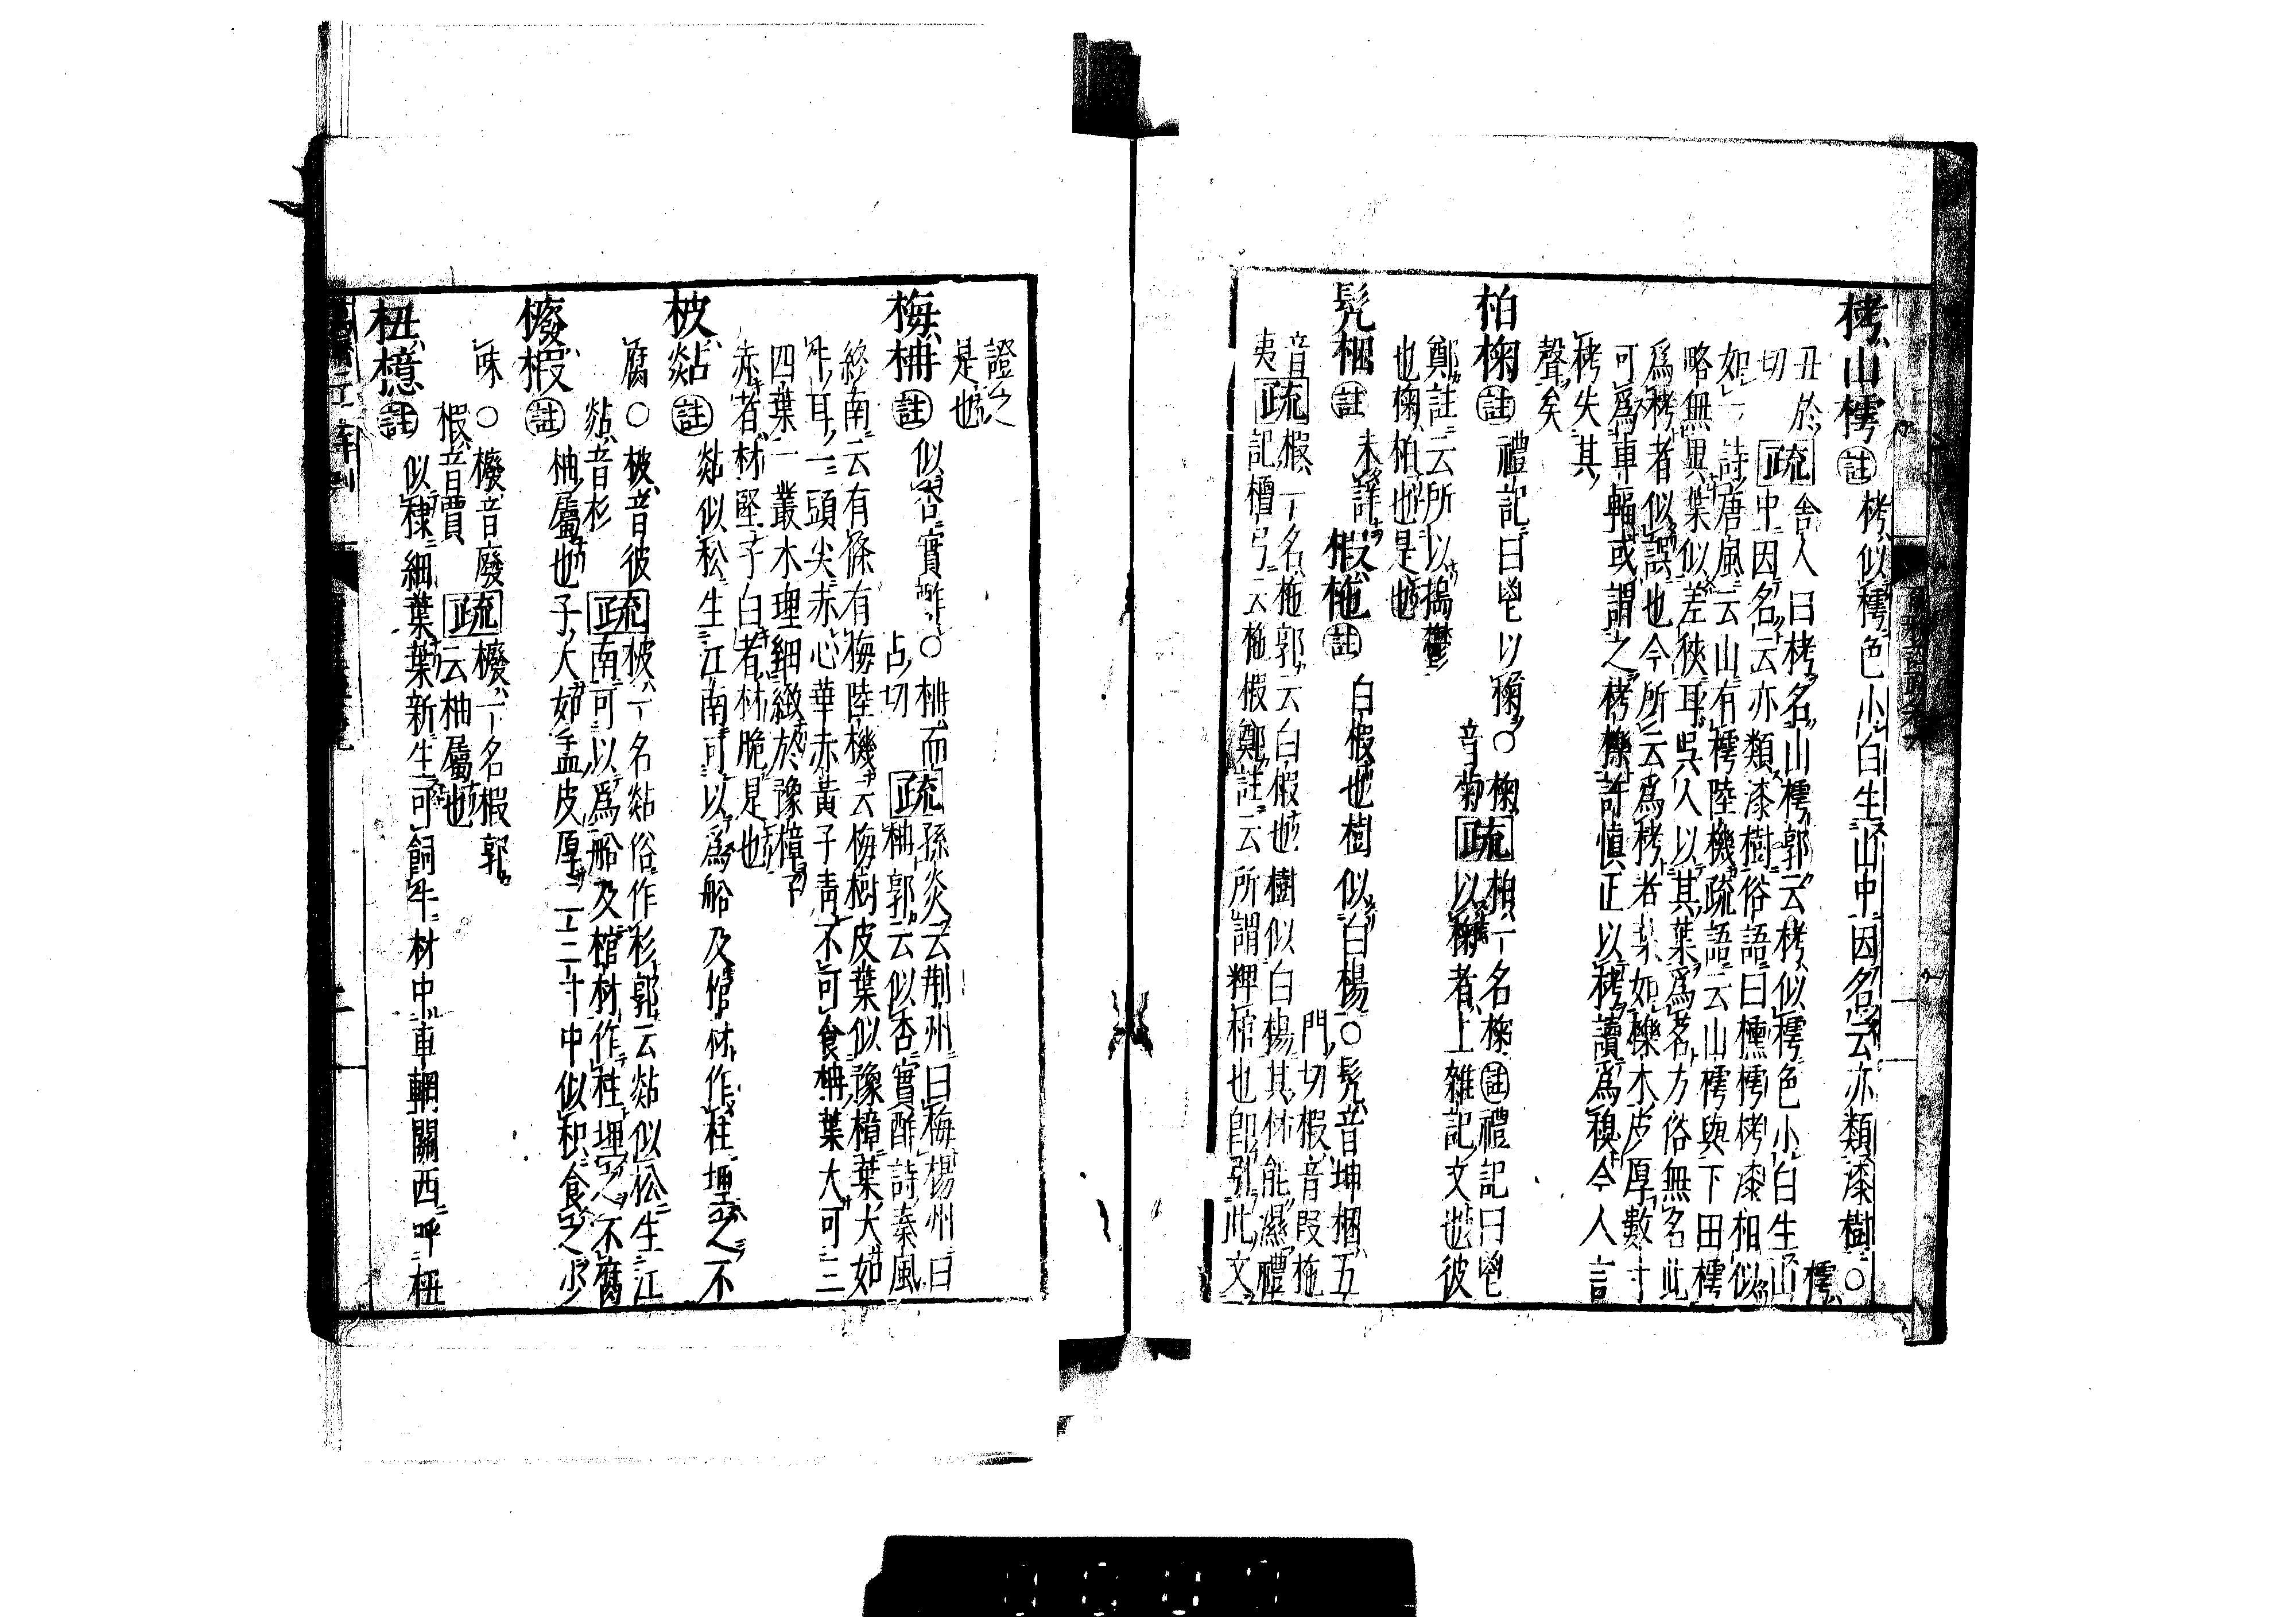 栲山樗 註 栲似樗色小白生山中因名云亦類漆樹○樗
丑於切 疏 舍人曰栲名山樗郭云栲似樗色小白生山
中因名云亦類漆樹俗語曰櫄樗栲漆相似
如一詩唐風云山有樗陸機疏語云山樗與下田樗
略無異葉似差狹耳吳人以其葉為茗方俗無名此
為栲者似誤也今所云為栲者葉如櫟木皮厚數寸
可為車輻或謂之栲櫟許慎正以栲讀為糗今人言
栲失其
聲矣
柏椈 註 禮記曰鬯以椈○椈音菊 疏 柏一名椈註禮記曰鬯
以椈者上雜記文也彼
鄭註云所以搗鬱
也椈柏也是也
髡梱 註 未詳 椵柂 註 白椵也樹似白楊○髡音坤梱五
門切椵音叚柂
音夷 疏 椵一名柂郭云白椵也樹似白楊其材能濕禮
記檀弓云柂椵鄭註云所謂椑棺也即引此文
證之
是也
梅柟 註 似杏實酢○柟而占切 疏 孫炎云荊州曰梅楊州曰
柟郭云似杏實酢詩秦風
終南云有條有梅陸機云梅樹皮葉似豫樟葉大如
牛耳一頭尖赤心華赤黃子青不可食柟葉大可三
四葉一叢木理細緻於豫樟子
赤者材堅子白者材脆是也
柀煔 註 煔似松生江南可以為船及棺材作柱埋之不
腐○柀音彼煔音杉 疏 柀一名煔俗作杉郭云煔似松生江
南可以為船及棺材作柱埋之不腐
櫠椵 註 柚屬也子大如盂皮厚二三寸中似枳食之少
味○櫠音廢椵音賈 疏 櫠一名椵郭
云柚屬也
杻檍 註 似棣細葉葉新生可飼牛材中車輞關西呼杻